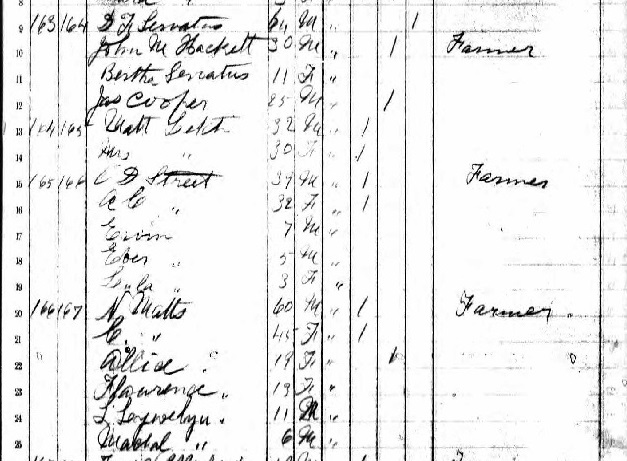 8
9 163 164 D F Senatus M " 1
10 John M Hackett 30 M " 1 Farmer
11 Bertha Senatus 11 F "
12 Jas Cooper 25 M " 1
13 164 165 Matt 32 M " 1
14 Mrs " 30 F " 1
15 165 166 C D Street 39 M " 1 Farmer
16 A C " 32 F " 1
17 Ervin 7 M "
18 " 5 M "
19 Lula " 3 F "
20 166 167 N Matts 60 M " 1 Farmer
21 C. " 45 F " 1
22 Allice " 19 F " 1
23 Flourence " 19 F "
24 L Lewelyn " 11 M "
25 " 6 M "